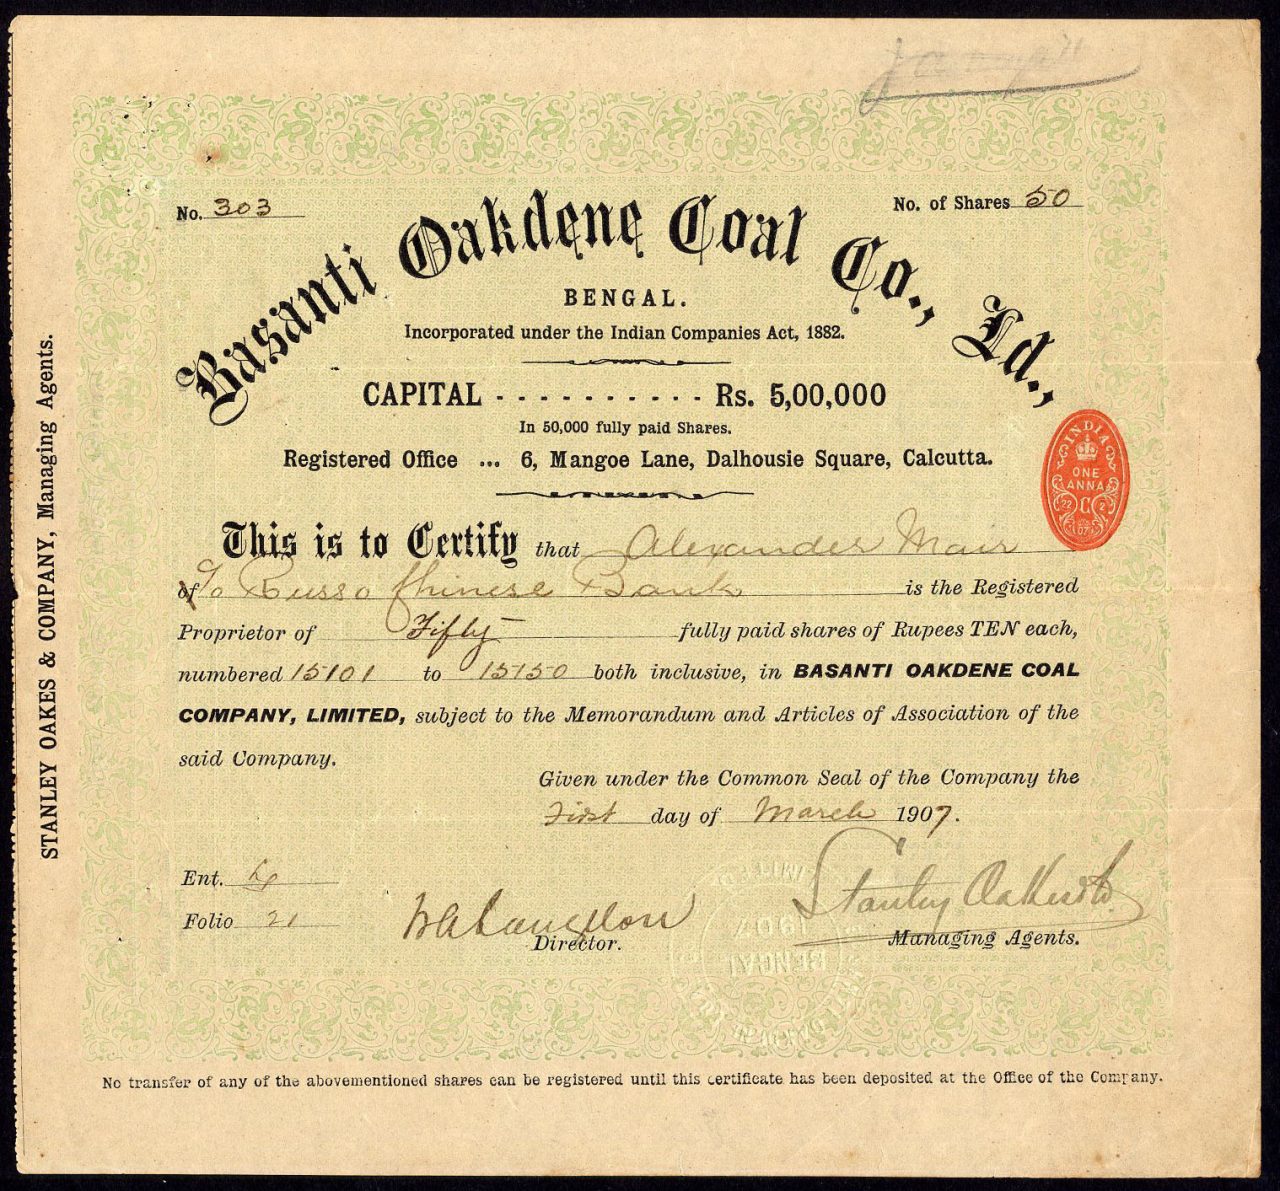 No. 303
No. of Shares 50
Basanti Oakdene Coal Co., Ld.,
BENGAL.
Incorporated under the Indian Companies Act, 1882.
CAPITAL - - - - - - - - - - Rs. 5,00,000
In 50,000 fully paid Shares.
Registered Office ... 6, Mangoe Lane, Dalhousie Square, Calcutta.
INDIA
ONE
ANNA
22 C 2
This is to Certify that Alexander Mair
of c/o Russo Chinese Bank is the Registered
Proprietor of Fifty fully paid shares of Rupees TEN each,
numbered 15101 to 15150 both inclusive, in BASANTI OAKDENE COAL
COMPANY, LIMITED, subject to the Memorandum and Articles of Association of the
said Company.
Given under the Common Seal of the Company the
First day of March 1907.
Ent.
Folio 21
Director.
Stanley Oakes & Co.
Managing Agents.
1907
BENGAL
No transfer of any of the abovementioned shares can be registered until this certificate has been deposited at the Office of the Company.
STANLEY OAKES & COMPANY, Managing Agents.